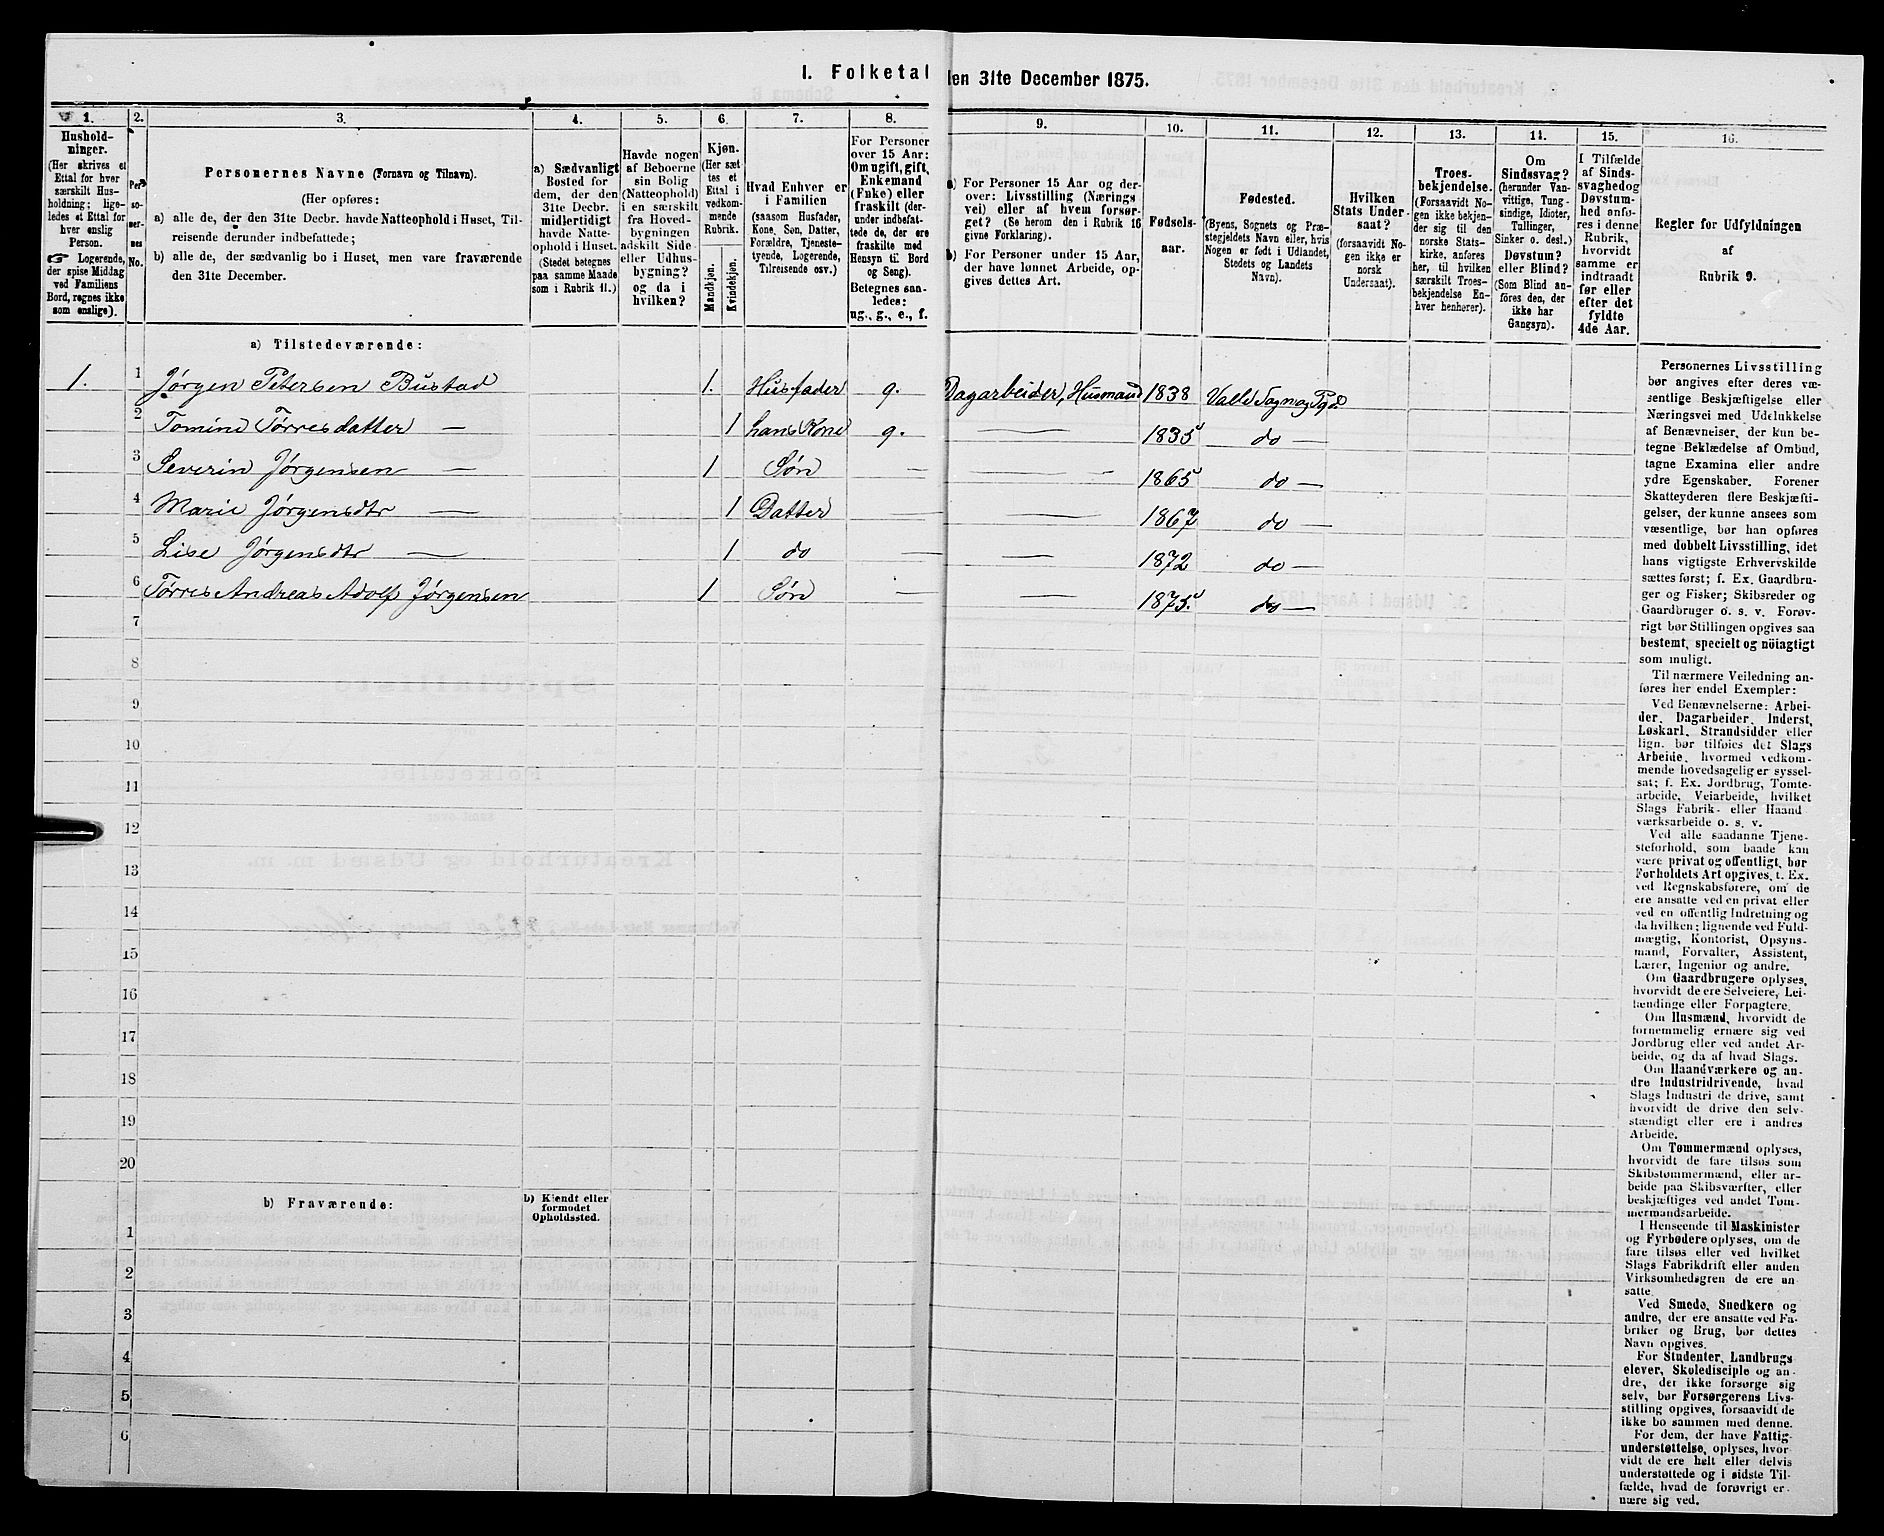 I. Folketal den 31te December 1875.
1. 2. 3. 4. 5. 6. 7. 8. 9. 10. 11. 12. 13. 14. 15. 16.
Hushold-
ninger.
(Her skrives et
Ettal for hver
særskilt Hus-
holdning; lige-
ledes et Ettal for
hver enslig
Person.
☛ Logerende,
der spise Middag
ved Familiens
Bord, regnes ikke
som enslige).
Per-
so-
ner-
nes
No.
Personernes Navne (Fornavn og Tilnavn).
(Her opføres:
a) alle de, der den 31te Decbr. havde Natteophold i Huset, Til-
reisende derunder indbefattede;
b) alle de, der sædvanlig bo i Huset, men vare fraværende
den 31te December.
a) Sædvanligt
Bosted for
dem, der den
31te Decbr.
midlertidigt
havde Natte-
ophold i Huset.
(Stedet betegnes
paa samme Maade
som i Rubrik 11.)
Havde nogen
af Beboerne
sin Bolig
(Natteophold)
i en særskilt
fra Hoved-
bygningen
adskilt Side-
eller Udhus-
bygning?
og da i
hvilken?
Kjøn.
(Her sæt-
tes et
Ettal i
vedkom-
mende
Rubrik.
Mandkjøn.
Kvindekjøn.
Hvad Enhver er
i Familien
(saasom Husfader,
Kone, Søn, Datter,
Forældre, Tjeneste-
tyende, Logerende,
Tilreisende osv.)
For Personer
over 15 Aar:
Om ugift, gift,
Enkemand
(Enke) eller
fraskilt (der-
under indbefat-
tede de, der ere
fraskilte med
Hensyn til Bord
og Seng).
Betegnes saa-
ledes:
ug., g., e., f.
a) For Personer 15 Aar og der-
over: Livsstilling (Nærings-
vei) eller af hvem forsør-
get? (Se herom den i Rubrik 16
givne Forklaring).
b) For Personer under 15 Aar,
der have lønnet Arbeide, op-
gives dettes Art.
Fødsels-
aar.
Fødested.
(Byens, Sognets og Præ-
stegjeldets Navn eller, hvis
Nogen er født i Udlandet,
Stedets og Landets
Navn).
Hvilken
Stats Under-
saat?
(forsaavidt No-
gen ikke er
norsk
Undersaat).
Troes-
bekjendelse.
(Forsaavidt No-
gen ikke bekjen-
der sig til den
norske Stats-
kirke, anføres
her, til hvilken
særskilt Troes-
bekjendelse En-
hver henhører).
Om
Sindssvag?
(herunder Van-
vittige, Tung-
sindige, Idioter,
Tullinger,
Sinker o. desl.)
Døvstum?
eller Blind?
(Som Blind an-
føres den, der
ikke har
Gangsyn).
I Tilfælde
af Sinds-
svaghed og
Døvstum-
hed anfø-
res i denne
Rubrik,
hvorvidt
samme er
indtraadt
før eller
efter det
fyldte
4de Aar.
Regler for Udfyldningen
af
Rubrik 9.
a) Tilstedeværende:
1. 1 Jørgen Petersen Bustad 1. Husfader g. Dagarbeider, Husmand 1838 Valle Sogn og Pgd
2 Tomine Tørresdatter — 1 hans Kone g. — 1835 do —
3 Severin Jørgensen — 1 Søn — — 1865 do —
4 Marie Jørgensdtr — 1 Datter — 1867 do —
5 Lise Jørgensdtr — 1 do — — 1872 do —
6 Tørres Andreas Adolf Jørgensen 1 Søn — — 1875. do —
7
8
9
10
11
12
13
14
15
16
17
18
19
20
b) Fraværende:
b) Kjendt eller
formodet
Opholdssted.
1
2
3
4
5
6
Personernes Livsstilling
bør angives efter deres væ-
sentlige Beskjæftigelse eller
Næringsvei med Udelukkelse
af Benævnelser, der kun be-
tegne Beklædelse af Ombud,
tagne Examina eller andre
ydre Egenskaber. Forener
Skatteyderen flere Beskjæfti-
gelser, der kunne ansees som
væsentlige, bør han opføres
med dobbelt Livsstilling, idet
hans vigtigste Erhvervskilde
sættes først; f. Ex. Gaardbru-
ger og Fisker; Skibsreder og
Gaardbruger o. s. v. Forøv-
rigt bør Stillingen opgives saa
bestemt, specielt og nöiagtigt
som muligt.
Til nærmere Veiledning an-
føres her endel Exempler:
Ved Benævnelserne: Arbei-
der, Dagarbeider, Inderst,
Løskarl, Strandsidder eller
lign. bør tilføies det Slags
Arbeide, hvormed vedkom-
mende hovedsagelig er syssel-
sat; f. Ex. Jordbrug, Tomte-
arbeide, Veiarbeide, hvilket
Slags Fabrik- eller Haand
værksarbeide o. s. v.
Ved alle saadanne Tjene-
steforhold, som baade kan
være privat og offentligt, bør
Forholdets Art opgives, t. Ex.
ved Regnskabsførere, om de
ere ansatte ved en privat eller
ved en offentlig Indretning og
da hvilken; lignende ved Fuld-
mægtig, Kontorist, Opsyns-
mand, Forvalter, Assistent,
Lærer, Ingeniør og andre.
Om Gaardbrugere oplyses,
hvorvidt de ere Selveiere, Lei-
lændinge eller Forpagtere.
Om Husmænd, hvorvidt de
fornemmelig ernære sig ved
Jordbrug eller ved andet Ar-
beide, og da af hvad Slags.
Om Haandværkere og an-
dre Industridrivende, hvad
Slags Industri de drive, samt
hvorvidt de drive den selv-
stændigt eller ere i andres
Arbeide.
Om Tømmermænd oplyses,
hvorvidt de fare tilsøs som
Skibstømmermænd, eller ar-
beide paa Skibsværfter, eller
beskjæftiges ved andet Tøm-
mermandsarbeide.
I Henseende til Maskinister
og Fyrbødere oplyses, om de
fare tilsøs eller ved hvilket
Slags Fabrikdrift eller anden
Virksomhedsgren de ere an-
satte.
Ved Smede, Snedkere og
andre, der ere ansatte ved Fa-
briker og Brug, bør dettes
Navn opgives.
For Studenter, Landbrugs-
elever, Skoledisciple og an-
dre, der ikke forsørge sig
selv, bør Forsørgerens Livs-
stilling opgives, forsaavidt de
ikke bo sammen med denne.
For dem, der have Fattig-
understøttelse, oplyses, hvor-
vidt de ere helt eller delvis
understøttede og i sidste Til-
fælde, hvad de forøvrigt er-
nære sig ved.